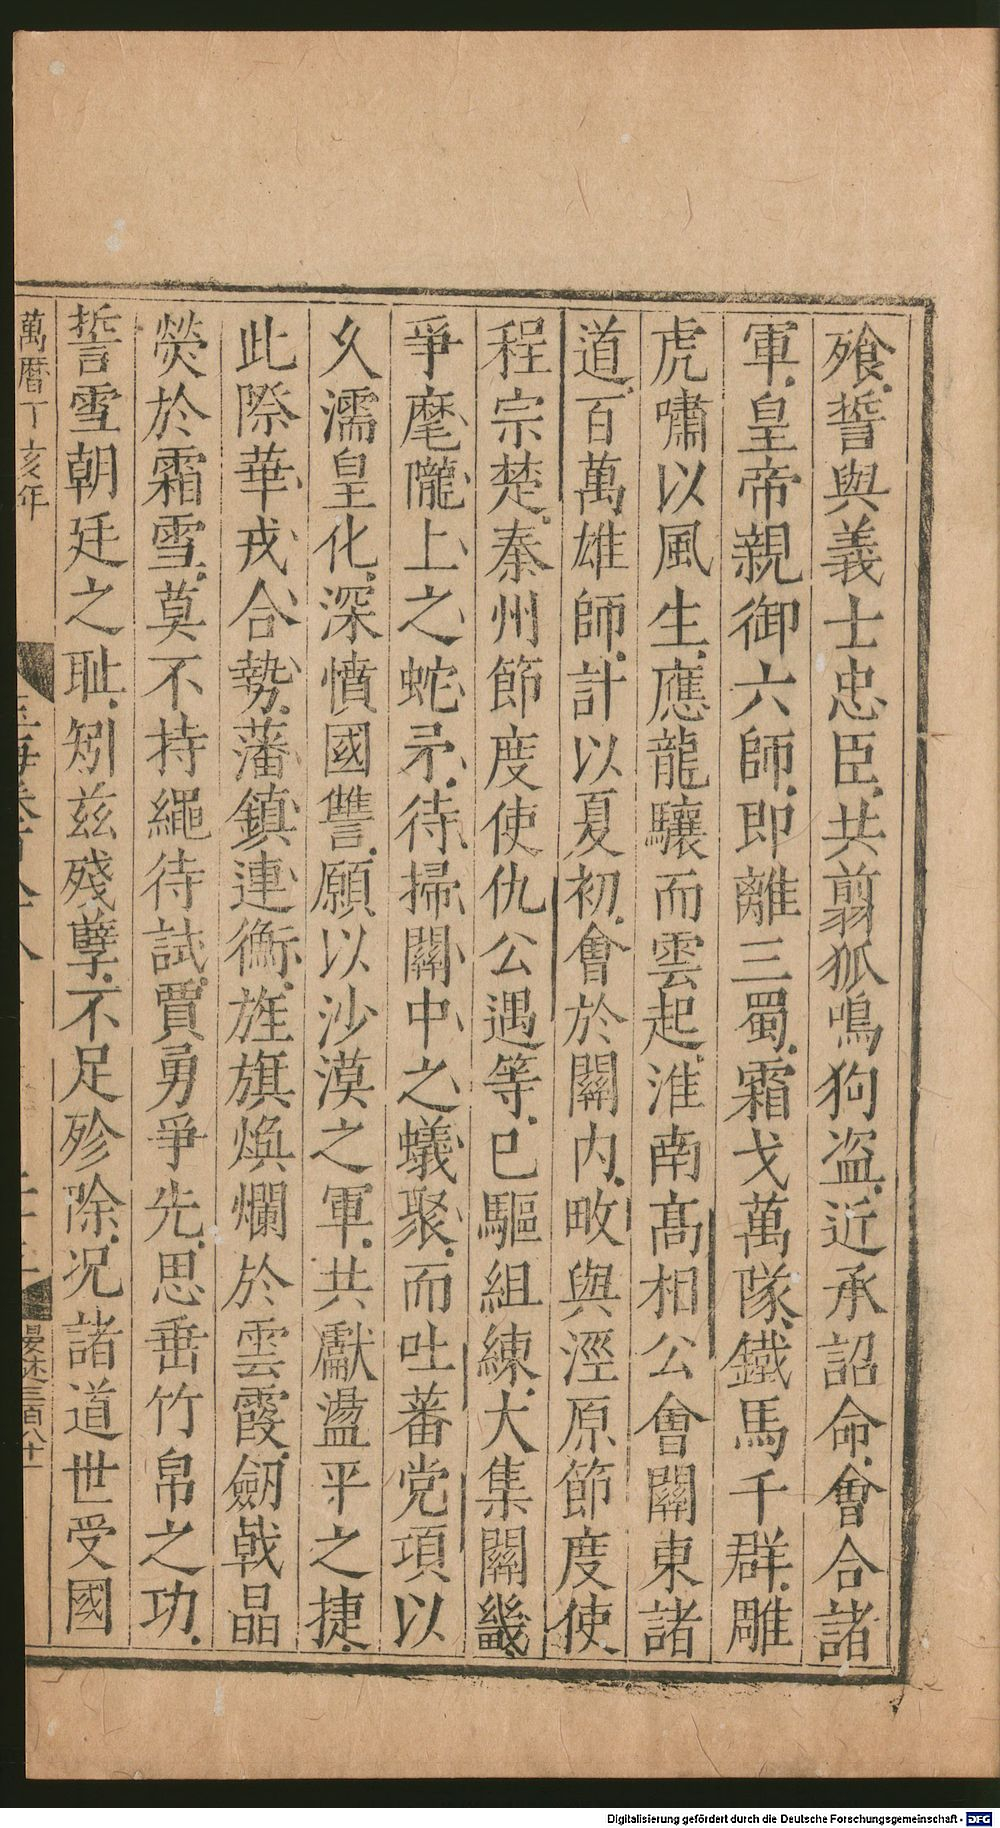 飱誓與義士忠臣共翦狐鳴狗盗近承詔命會合諸
軍皇帝親御六師即離三蜀霜戈萬隊鐵馬千群雕
虎嘯以風生應龍驤而雲起淮南髙相公會關東諸
道百萬雄師計以夏初會於關内畋與涇原節度使
程宗楚秦州節度使仇公遇等已驅組練大集關畿
爭麾隴上之蛇矛待掃關中之蟻聚而吐蕃党項以
久濡皇化深憤國讐願以沙漠之軍共獻盪平之捷
此際華戎合勢藩鎮連衡旌旗煥爛於雲霞劒戟晶
熒於霜雪莫不持繩待試賈勇爭先思垂竹帛之功
誓雪朝廷之耻矧兹殘孽不足殄除况諸道世受國
萬曆丁亥年
三百八十一
Digitalisierung gefördert durch die Deutsche Forschungsgemeinschaft - DFG